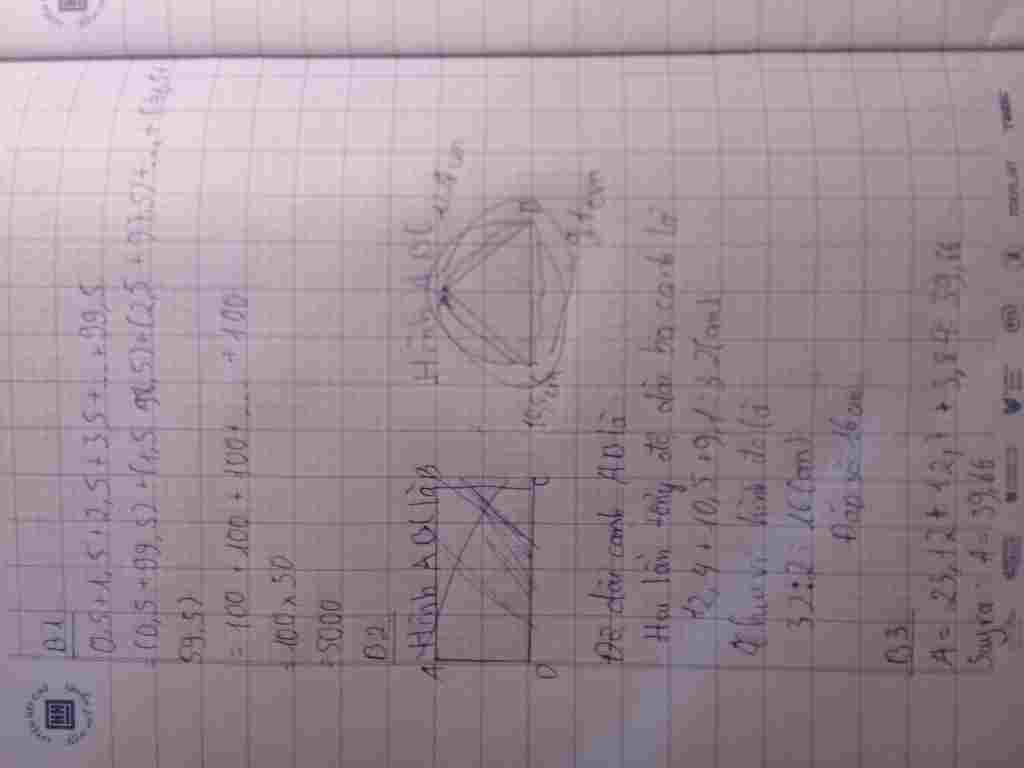 B1
0,5 + 1,5 + 2,5 + 3,5 + ... + 99,5
= (0,5 + 99,5) + (1,5 98,5) + (2,5 + 97,5) + ... +
59,5)
= 100 + 100 + 100 + ... + 100
= 100 x 50
= 5000
B2
Hình ABCD là
Hình ABC
A
B
12,4 cm
D
C
9,1 cm
Độ dài cạnh AD là
Hai lần tổng độ dài ba cạnh là
12,4 + 10,5 + 9,1 = 32 (cm)
Chu vi hình đó là
32 : 2 = 16 (cm)
Đáp số: 16 cm
B3
A = 23,12 + 12,7 + 3,84 = 39,66
Suy ra: A = 39,66